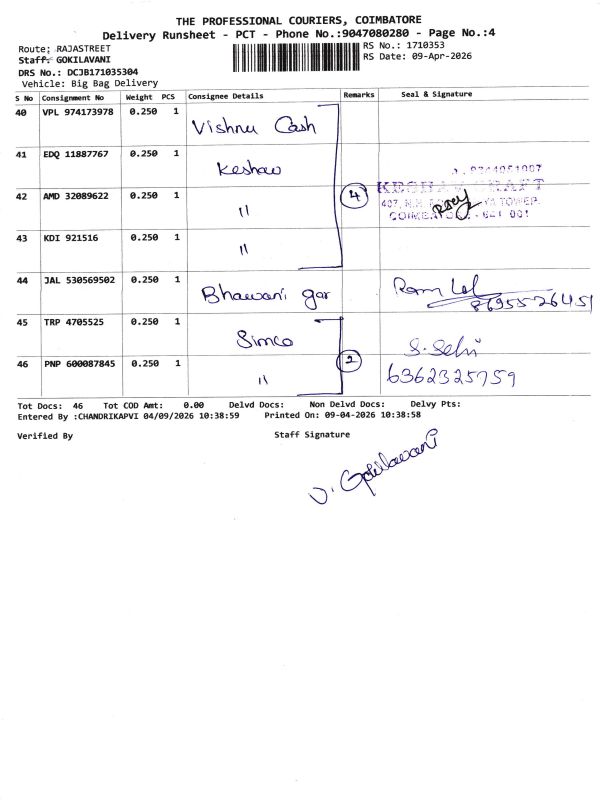 THE PROFESSIONAL COURIERS, COIMBATORE
Delivery Runsheet - PCT - Phone No.:9047080280 - Page No.:4
Route: RAJASTREET
RS No.: 1710353
Staff: GOKILAVANI
RS Date: 09-Apr-2026
DRS No.: DCJB171035304
Vehicle: Big Bag Delivery
S No Consignment No Weight PCS Consignee Details Remarks Seal & Signature
40 VPL 974173978 0.250 1 Vishnu Cash
41 EDQ 11887767 0.250 1 Keshav
42 AMD 32089622 0.250 1 " 4
COIMBATORE - 641 001
43 KDI 921516 0.250 1 "
44 JAL 530569502 0.250 1 Bhawani gar Ram Lal
8695526451
45 TRP 4705525 0.250 1 Simco
46 PNP 600087845 0.250 1 " 2 6362325759
Tot Docs: 46 Tot COD Amt: 0.00 Delvd Docs: Non Delvd Docs: Delvy Pts:
Entered By :CHANDRIKAPVI 04/09/2026 10:38:59 Printed On: 09-04-2026 10:38:58
Verified By Staff Signature
V. Gokilavani